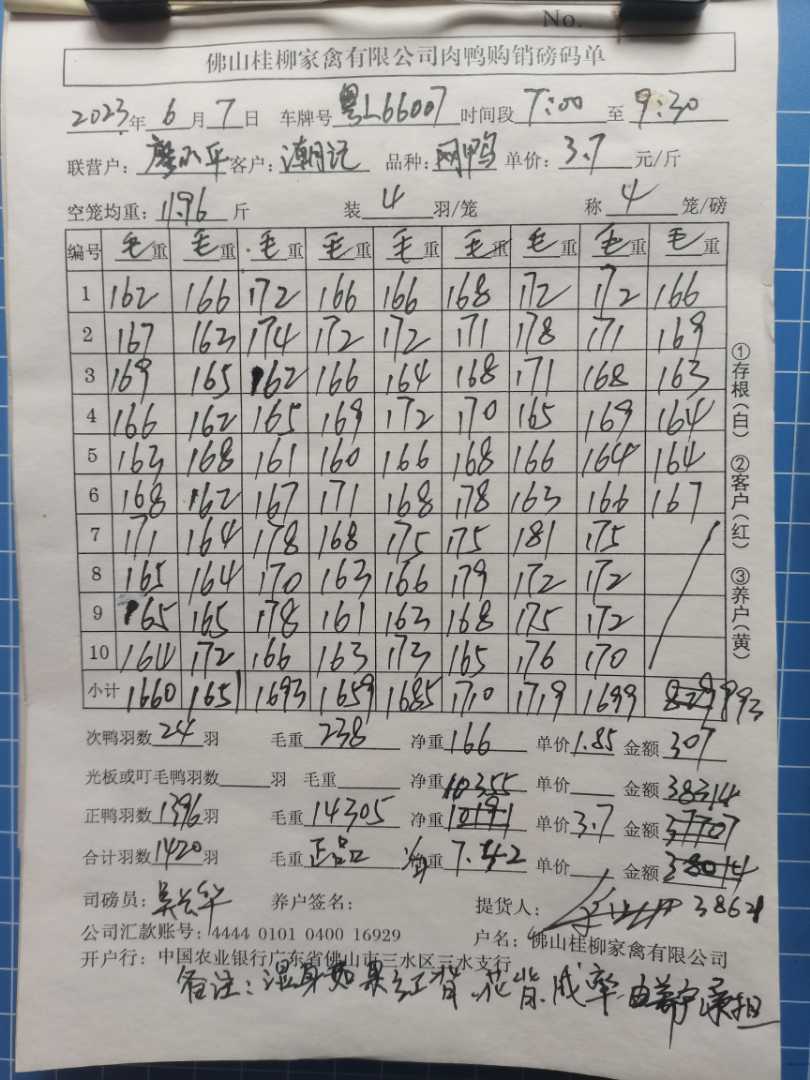 No.
佛山桂柳家禽有限公司肉鸭购销磅码单
2023年 6月 7日 车牌号 粤L66007 时间段 7:00 至 9:30
联营户: 客户: 潮记 品种: 网鸭 单价: 3.7 元/斤
空笼均重: 11.96 斤 装 4 羽/笼 称 4 笼/磅
编号 毛重 毛重 毛重 毛重 毛重 毛重 毛重 毛重 毛重
1 162 166 172 166 166 168 172 172 166
2 167 163 174 172 172 171 178 171 169
3 169 165 162 166 164 168 171 168 163
4 166 162 165 169 172 170 165 169 164
5 163 168 161 160 166 168 166 164 164
6 168 162 167 171 168 178 163 166 167
7 171 164 178 168 175 175 181 175
8 165 164 170 163 166 179 172 172
9 165 165 178 161 163 168 175 172
10 164 172 166 163 173 165 176 170
小计 1660 1651 1693 1659 1685 1710 1719 1699 993
次鸭羽数 24 羽 毛重 238 净重 166 单价 1.85 金额 307
光板或叮毛鸭羽数 羽 毛重 净重 10355 单价 金额 38314
正鸭羽数 1396 羽 毛重 14305 净重 10191 单价 3.7 金额 37707
合计羽数 1420 羽 毛重 正品 净重 7.42 单价 金额 38014
司磅员: 吴云华 养户签名: 提货人: 38621
公司汇款账号: 4444 0101 0400 16929 户名: 佛山桂柳家禽有限公司
开户行: 中国农业银行广东省佛山市三水区三水支行
备注: 湿身如果红背、花背、成率由养户承担
①存根(白) ②客户(红) ③养户(黄)